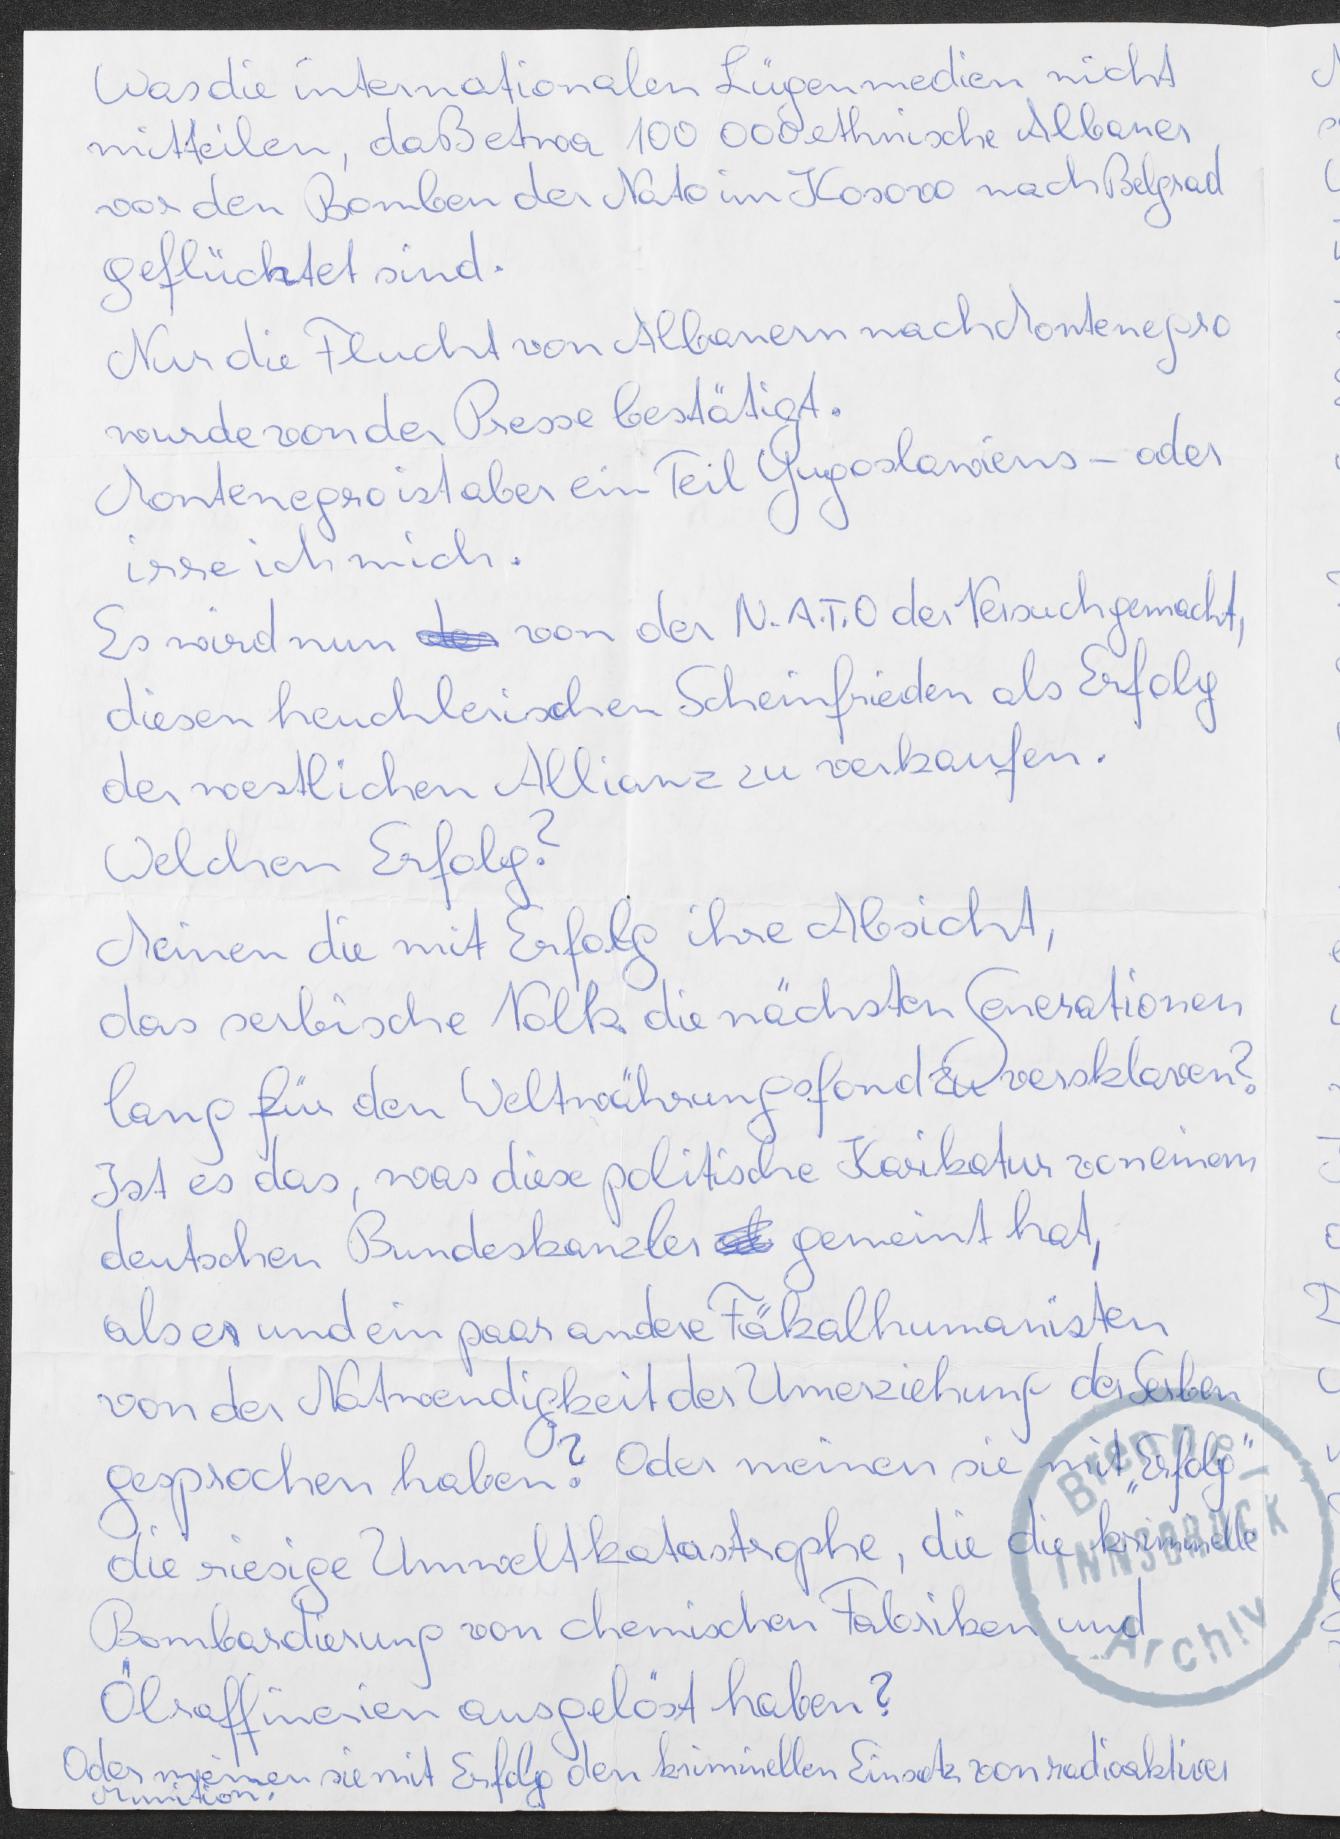 Was die internationalen Lügenmedien nicht
mitteilen, daß etwa 100 000 ethnische Albaner
vor den Bomben der Nato im Kosovo nach Belgrad
geflüchtet sind.
Nur die Flucht von Albanern nach Montenegro
wurde von der Presse bestätigt.
Montenegro ist aber ein Teil Yugoslawiens – oder
irre ich mich.
Es wird nun von der N.A.T.O der Versuch gemacht,
diesen heuchlerischen Scheinfrieden als Erfolg
der westlichen Allianz zu verkaufen.
Welchen Erfolg?
Meinen die mit Erfolg ihre Absicht,
das serbische Volk die nächsten Generationen
lang für den Weltwährungsfond zu versklaven?
Ist es das, was diese politische Karikatur von einem
deutschen Bundeskanzler gemeint hat,
als er und ein paar andere Fäkalhumanisten
von der Notwendigkeit der Umerziehung der Serben
gesprochen haben? Oder meinen sie mit „Erfolg"
die riesige Umweltkatastrophe, die die kriminelle
Bombardierung von chemischen Fabriken und
Ölraffinerien ausgelöst haben?
Oder meinen sie mit Erfolg den kriminellen Einsatz von radioaktiver
Munition.
Brenner-
INNSBRUCK
Archiv